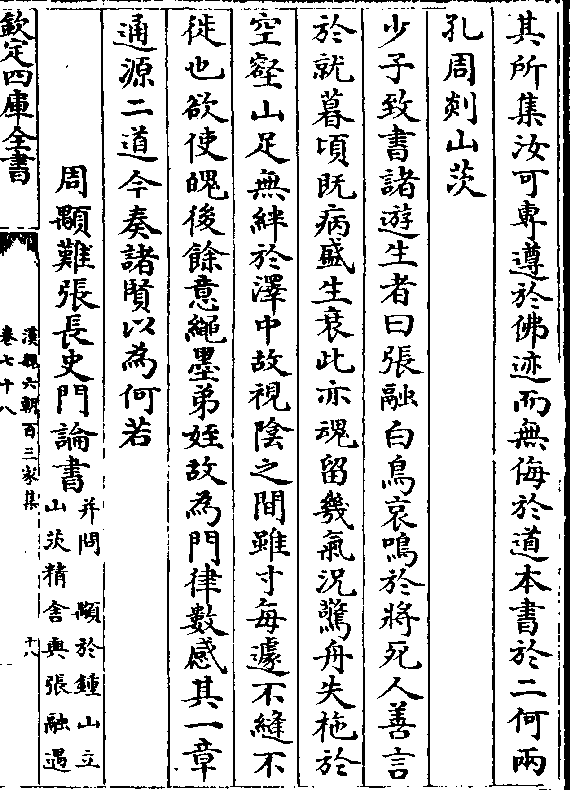 其所集汝可專遵於佛迹而無侮於道本書於二何兩
孔周剡山茨
少子致書諸遊生者曰張融白鳥哀鳴於將死人善言
於就暮頃既病盛生衰此亦魂留幾氣況驚舟失柂於
空壑山足無絆於澤中故視陰之間雖寸每遽不縫不
徙也欲使魄後餘意繩墨弟姪故為門律數感其一章
通源二道今奏諸賢以為何若
周顒難張長史門論書并問 顒於鍾山立
山茨精舍與張融遇
欽定四庫全書
漢魏六朝百三家集
卷七十八
十八